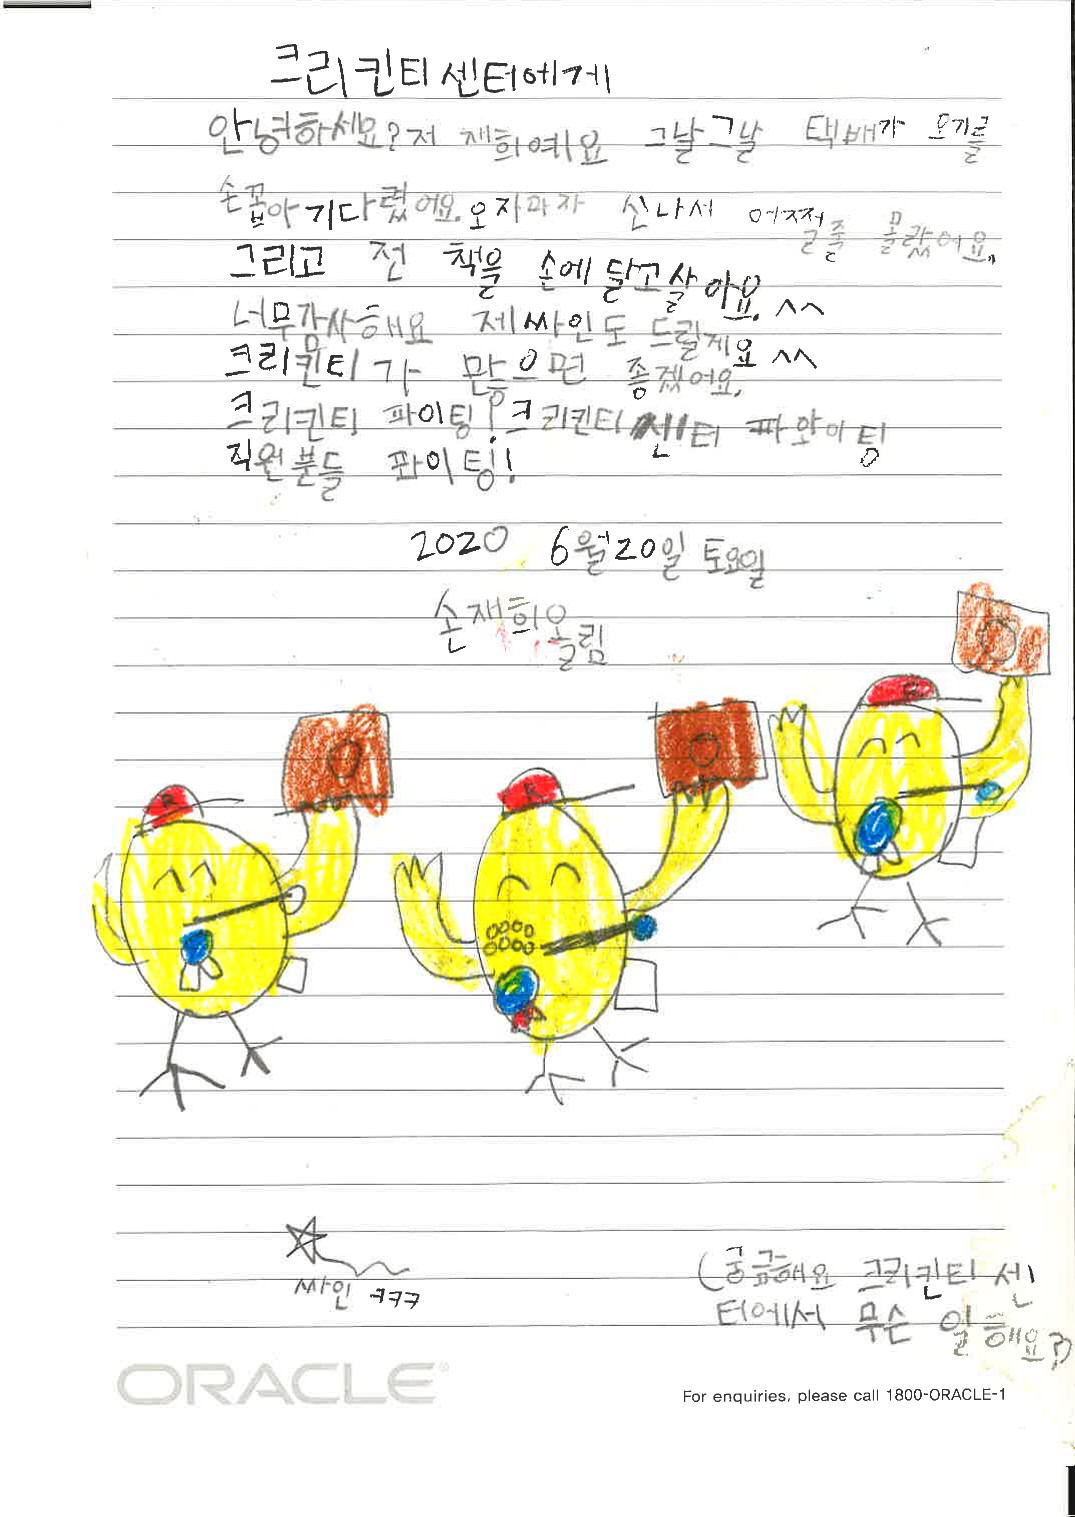 크리킨티센터에게
안녕하세요? 저 재희예요 그날그날 택배가 오기를
손꼽아 기다렸어요. 오자과자 신나서 어쩌줄줄 몰랐어요,
그리고 전 책을 손에 달고살아요. ^^
너무감사해요 제싸인도 드릴게요 ^^
크리킨티가 많으면 좋겠어요.
크리킨티 파이팅! 크리킨티센터 파이팅
직원분들 파이팅!
2020 6월20일 토요일
손재희올림
R
R
싸인 ㅋㅋㅋ
(궁금해요 크리킨티 센
터에서 무슨 일해요?)
ORACLE
For enquiries, please call 1800-ORACLE-1